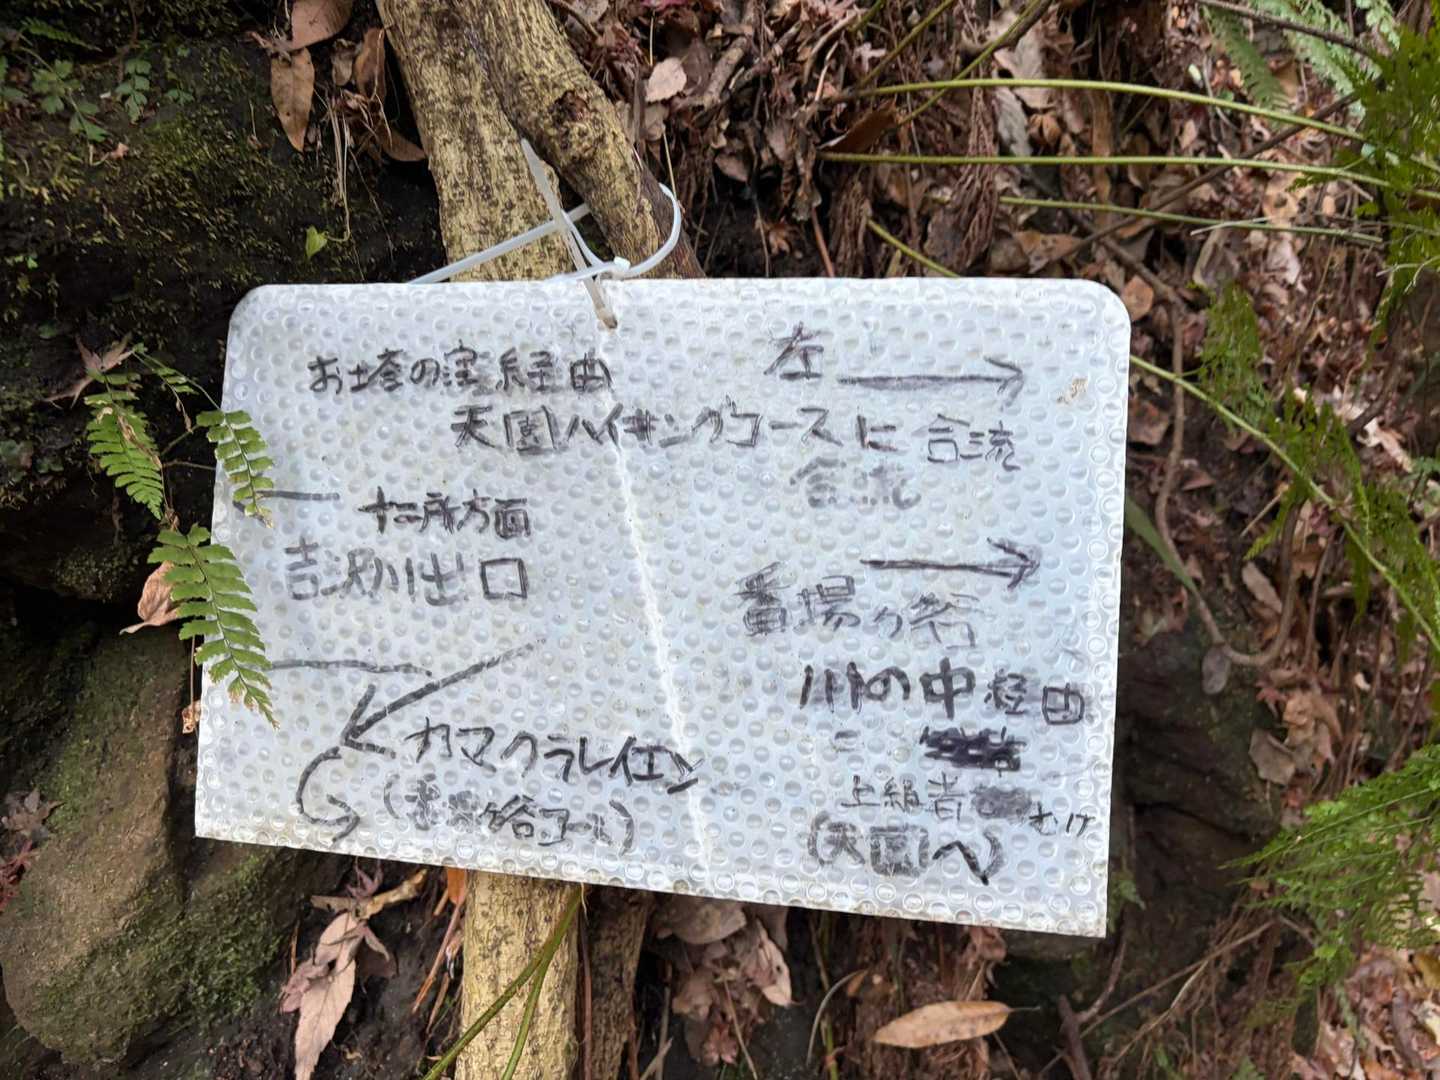 お塔の窪経由
左
天園ハイキングコースに合流
合流
十二所方面
吉沢川出口
番場ヶ谷
川の中経由
カマクラレイエン
上級者
むけ
谷コース)
(天園へ)